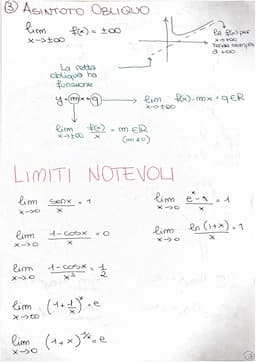 ③ ASINTOTO OBLIQUO
lim f(x) = ±∞
x→±∞
la f(x) per
x→±∞
tende sempre
a ±∞
La retta
obliqua ha
funzione
y=mx+q → lim f(x)-mx = q∈R
x→±∞
lim f(x)/x = m∈R
x→±∞ (m≠0)
LIMITI NOTEVOLI
lim senx/x = 1
x→0
lim (e^x-1)/x = 1
x→0
lim (1-cosx)/x = 0
x→0
lim ln(1+x)/x = 1
x→0
lim (1-cosx)/x² = 1/2
x→0
lim (1+1/x)^x = e
x→±∞
lim (1+x)^1/x = e
x→0